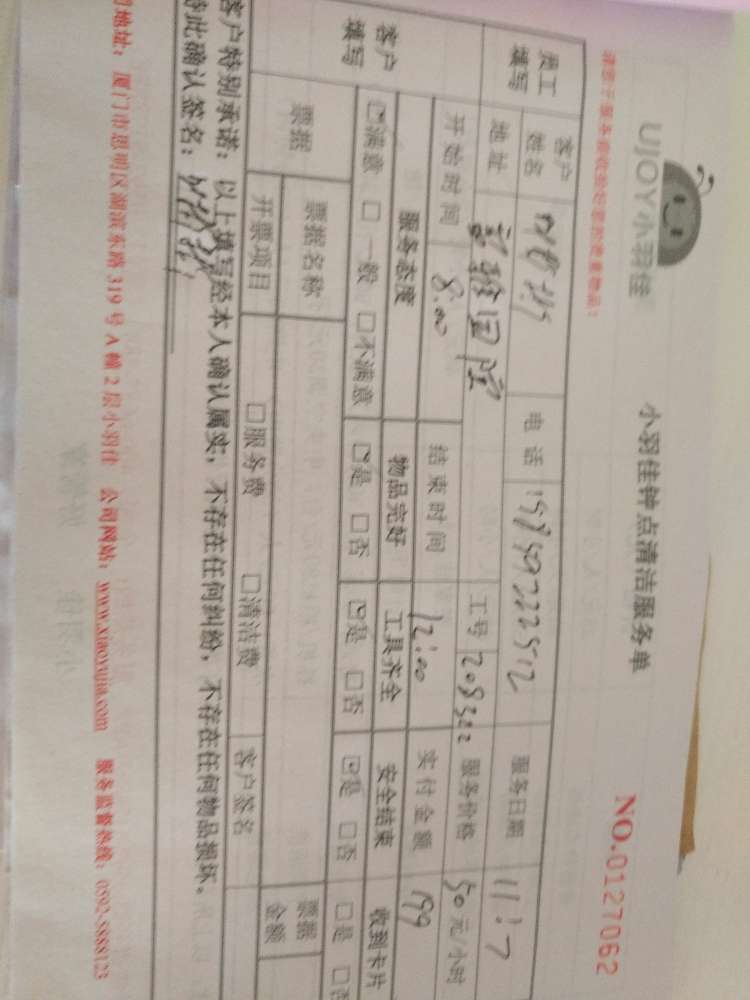 UJOY小羽佳
小羽佳钟点清洁服务单
NO.0127062
员工填写
客户姓名
电话
服务日期 11:7
地址
工号 208322
服务价格 50元/小时
开始时间 8:00
结束时间 12:00
实付金额 199
客户填写
服务态度 物品完好 工具齐全 安全结束 收到卡片
☑满意 □一般 □不满意 ☑是 □否 ☑是 □否 ☑是 □否 □是 □否
票据
票据名称
票据金额
开票项目 □服务费 □清洁费
客户签名
客户特别承诺：以上填写经本人确认属实，不存在任何纠纷，不存在任何物品损坏。
此确认签名：
地址：厦门市思明区湖滨东路319号A幢2层小羽佳 公司网站：www.xiaoyujia.com 服务监督热线：0592-5888123